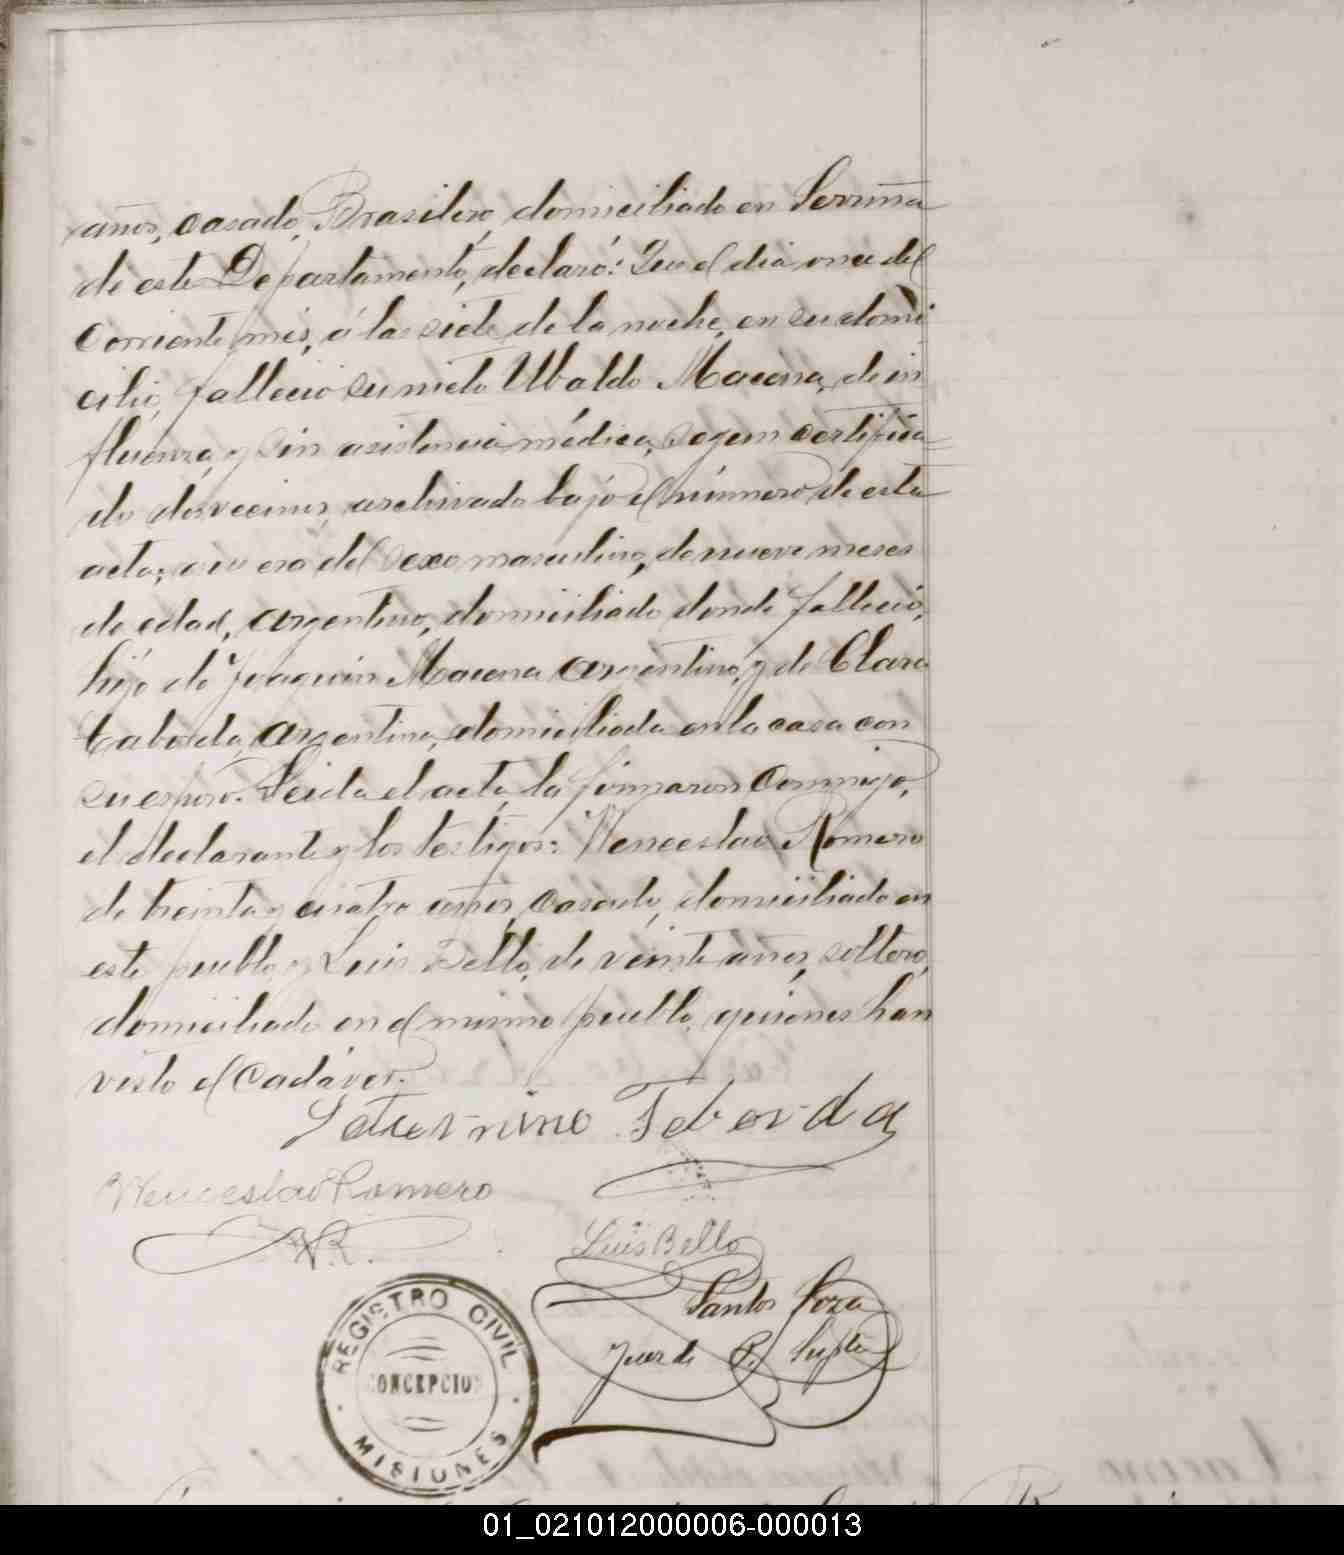 años, casado, Brasilero, domiciliado en
de este Departamento, declaró: Que el dia once del
corriente mes, á las siete de la noche, en su domi
cilio, falleció su nieto Ubaldo Macena, de in
fluenza, y sin asistencia médica, segun certifica
do dos vecinos, archivado bajo el número de esta
acta; que era del sexo masculino, de nueve meses
de edad, argentino, domiciliado donde falleció,
hijo de Joaquin Macena argentino, y de Clara
Taborda, argentina, domiciliada en la casa con
su esposo. Leida el acta, la firmaron conmigo,
el declarante y los testigos: Wenceslao Romero
de treinta y cuatro años, casado, domiciliado en
este pueblo, y Luis Bello, de veinte años, soltero,
domiciliado en el mismo pueblo, quienes han
visto el cadáver.
Saturnino Taborda
Wenceslao Romero
W.R.
Luis Bello
Santos Soza
Juez de P. Suplte
REGISTRO CIVIL
CONCEPCION
MISIONES
01_021012000006-000013